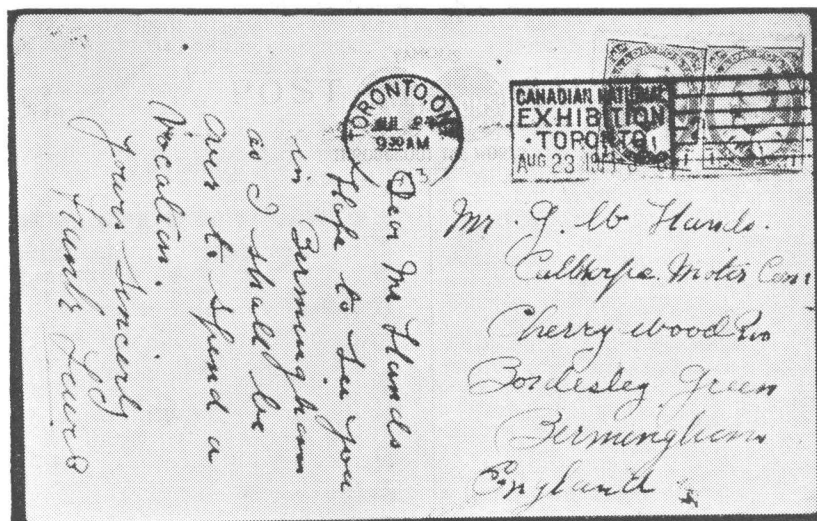 TORONTO, ONT
JUL 24
9 30 AM
CANADIAN NATIONAL
EXHIBITION
TORONTO
AUG 23
Dear Mr Hands
Hope to See you
in Bermingham
as I shall be
over to Spend a
Vocation.
Yours Sincerly
Frank Lewis
Mr. G. W Hands.
Calthorpe Motor Com
Cherrywood Ro
Bordesley Green
Bermingham
England